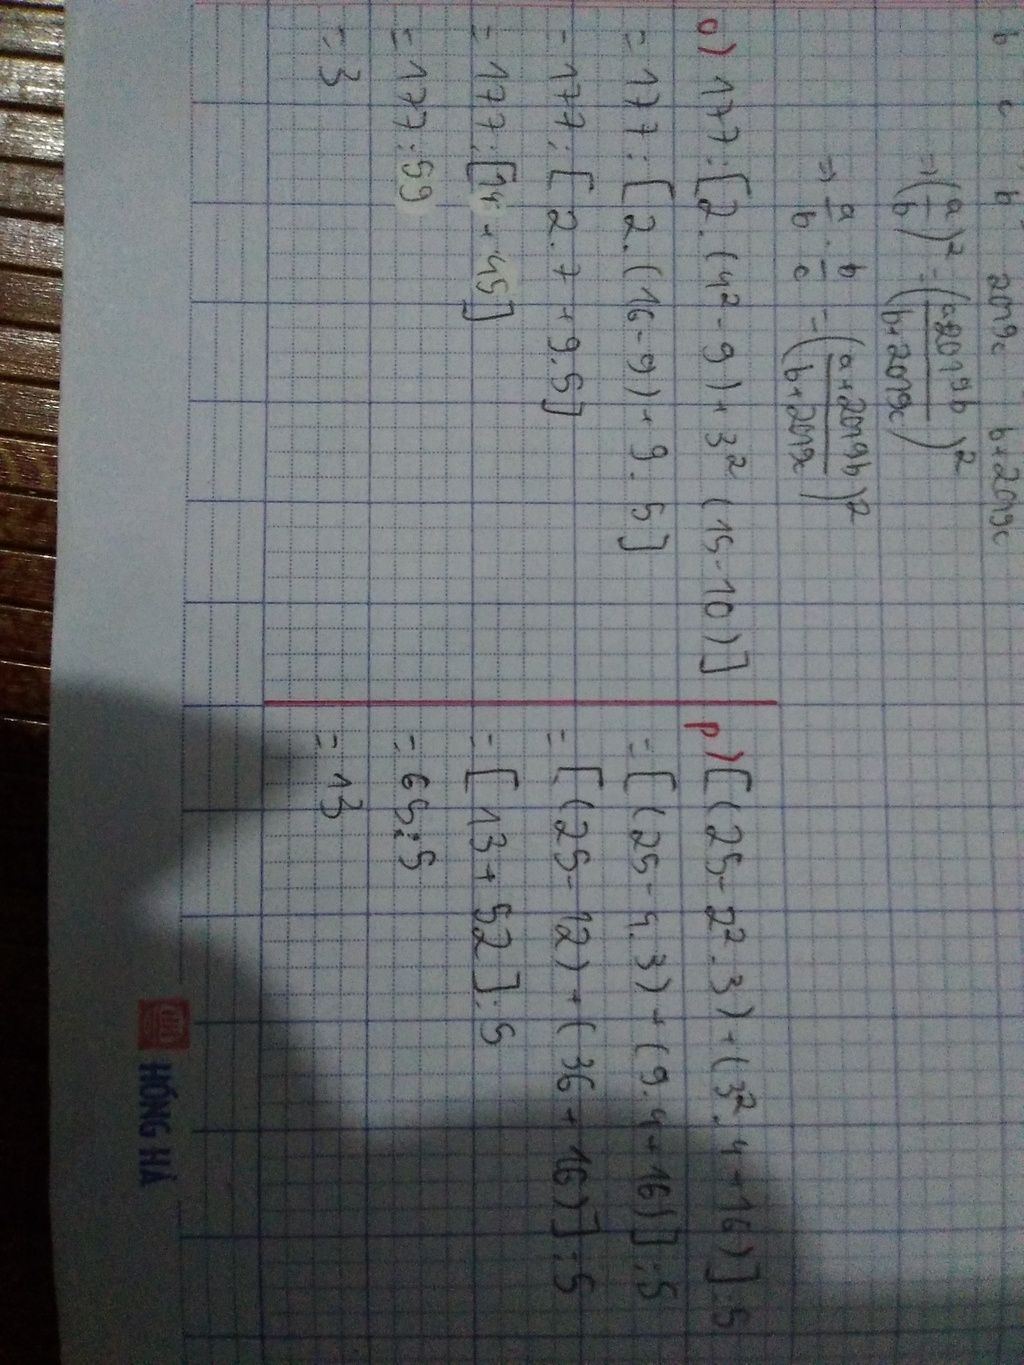 b c b 2019c b+2019c
⇒ (a/b)² = (a+2019b/b+2019c)²
⇒ a/b · b/c = (a+2019b/b+2019c)²
o) 177 : [2.(4² - 9) + 3² (15-10)]
= 177 : [2.(16-9) + 9.5]
= 177 : [2.7 + 9.5]
= 177 : [14 + 45]
= 177 : 59
= 3
p) [(25 - 2².3) + (3².4+16)] : 5
= [(25 - 4.3) + (9.4+16)] : 5
= [(25 - 12) + (36+16)] : 5
= [13 + 52] : 5
= 65 : 5
= 13
HỒNG HÀ